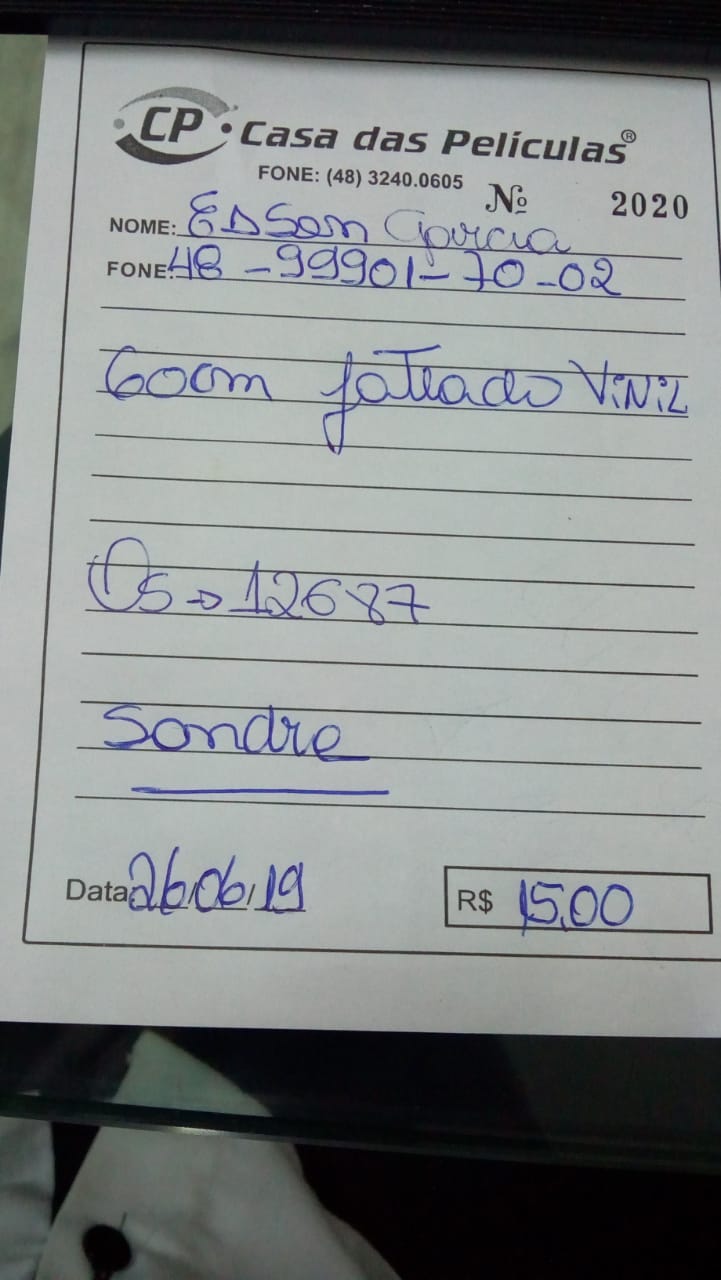 CP • Casa das Películas®
FONE: (48) 3240.0605
Nº 2020
NOME: EDSon Garcia
FONE: 48-99901-70-02
60cm jateado ViNiL
Os → 12687
Sandra
Data 26/06/19
R$ 15,00